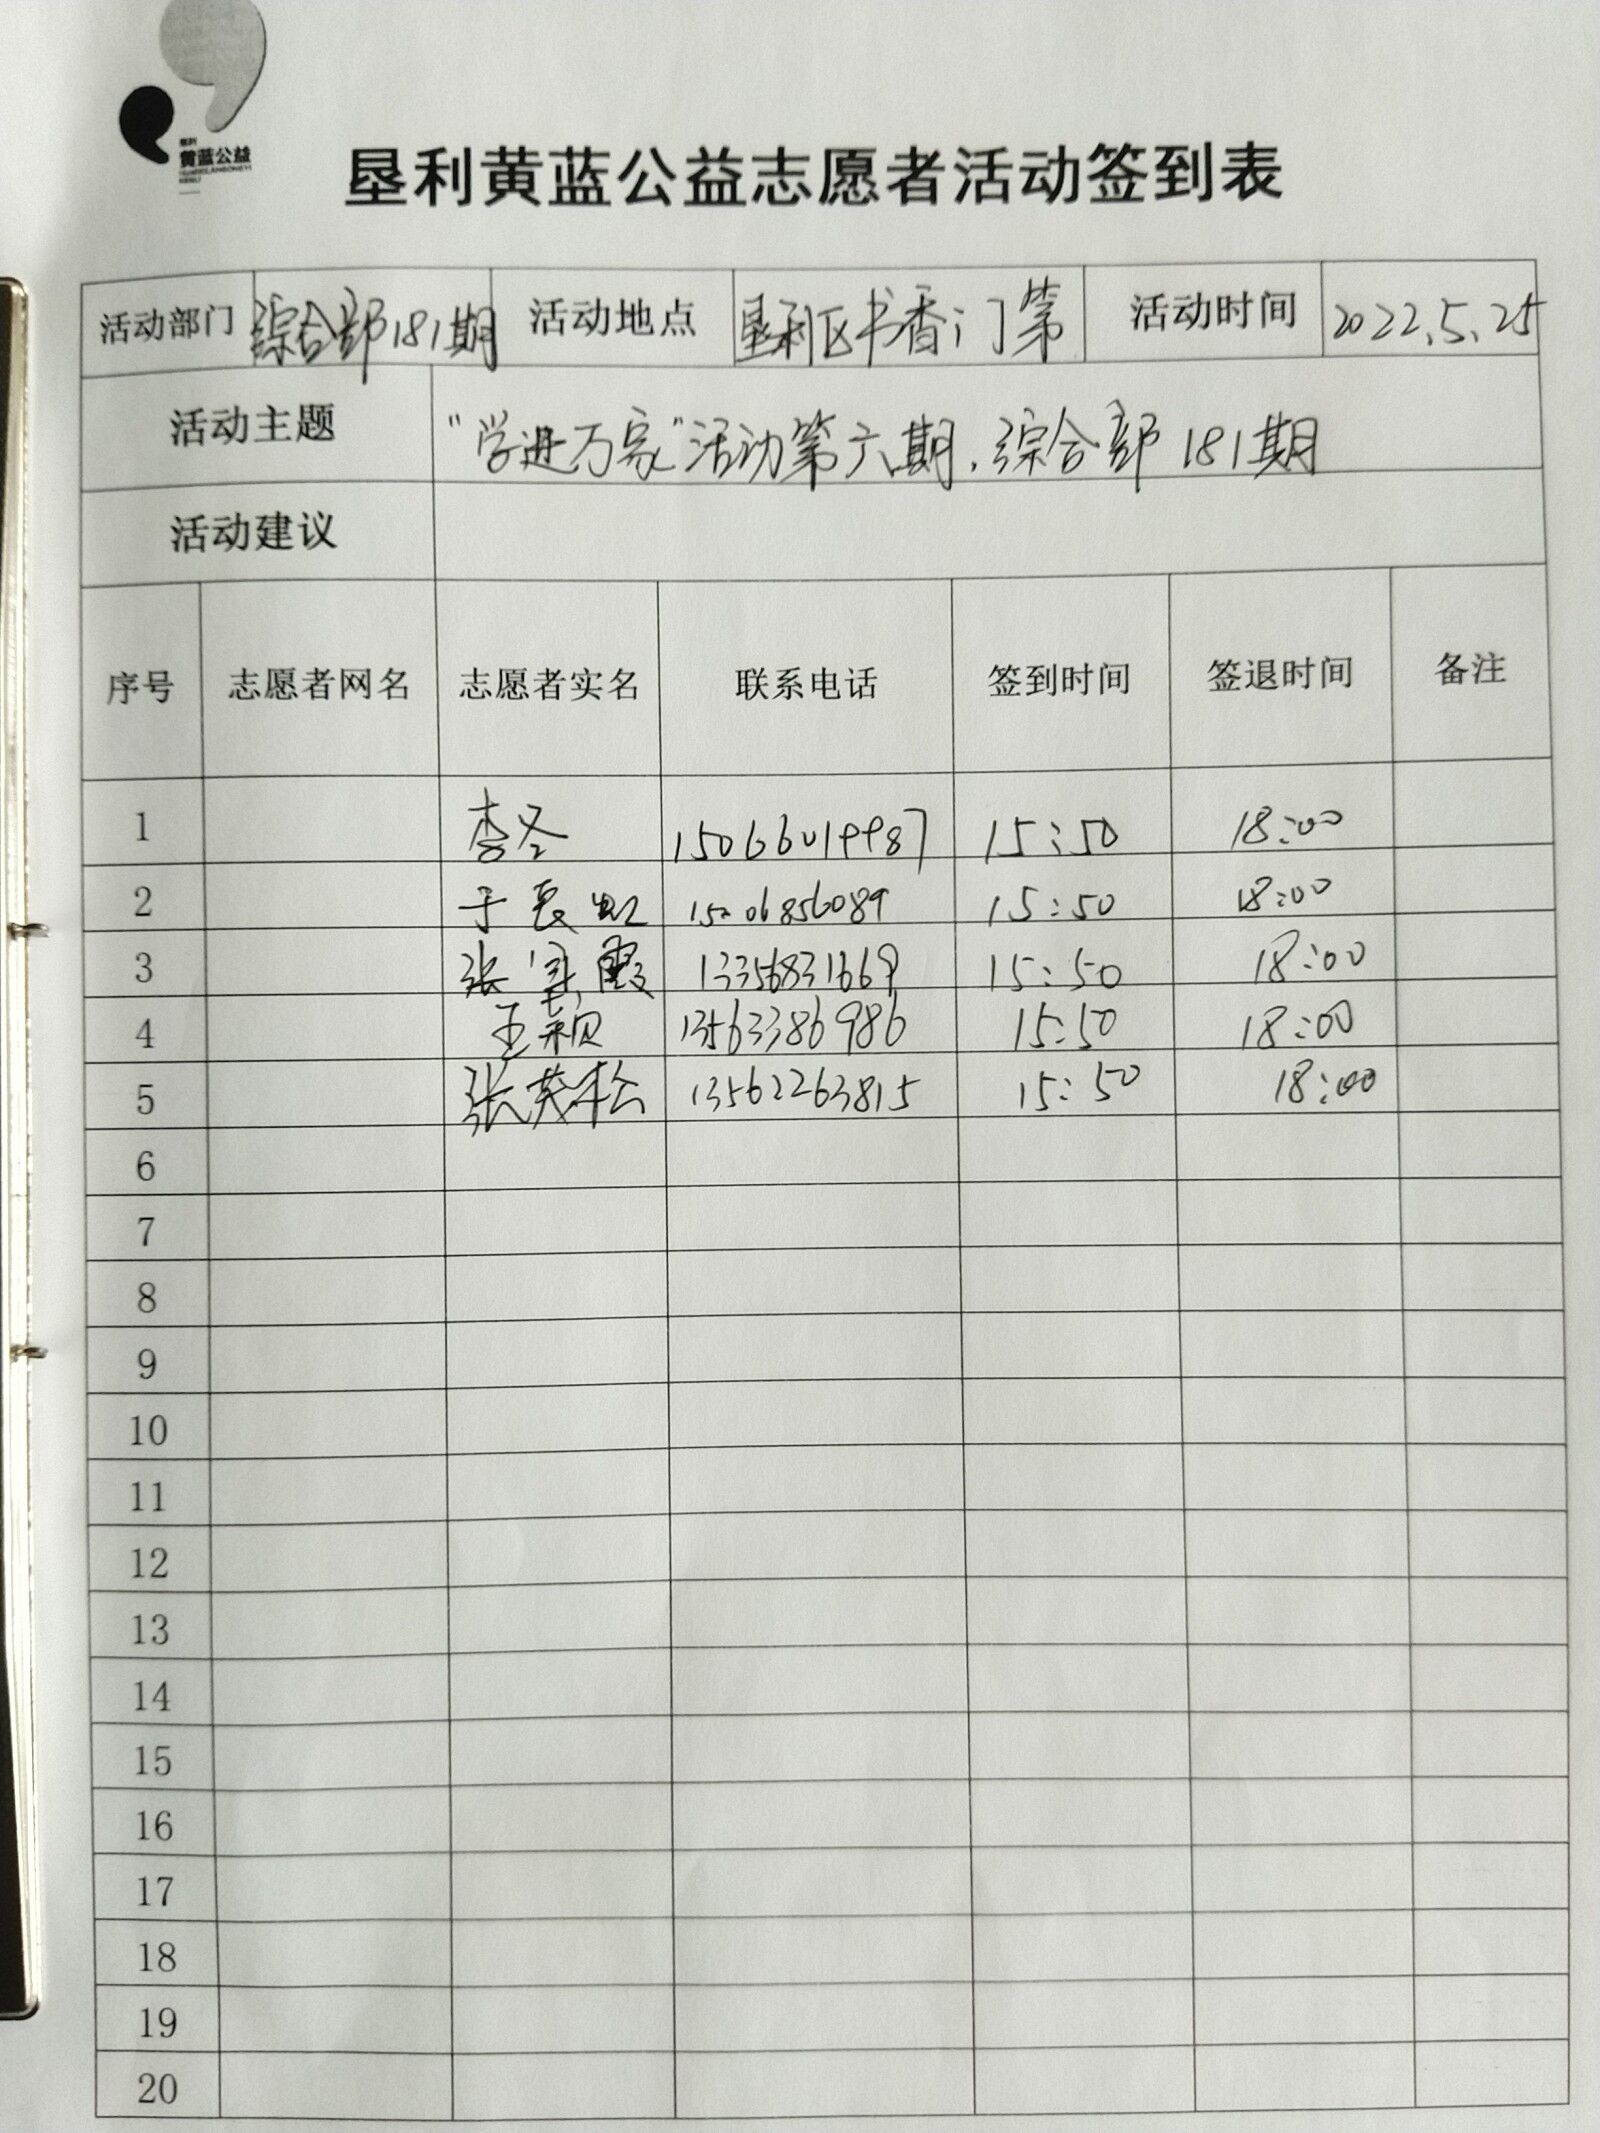 黄蓝公益
垦利黄蓝公益志愿者活动签到表
活动部门 综合部181期 活动地点 垦利区书香门第 活动时间 2022.5.25
活动主题 "学进万家"活动第六期.综合部181期
活动建议
序号 志愿者网名 志愿者实名 联系电话 签到时间 签退时间 备注
1 李冬 15066019987 15:50 18:00
2 于 15206856089 15:50 18:00
3 张 霞 13356831669 15:50 18:00
4 王颖 13563386986 15:50 18:00
5 张英松 13562263815 15:50 18:00
6
7
8
9
10
11
12
13
14
15
16
17
18
19
20